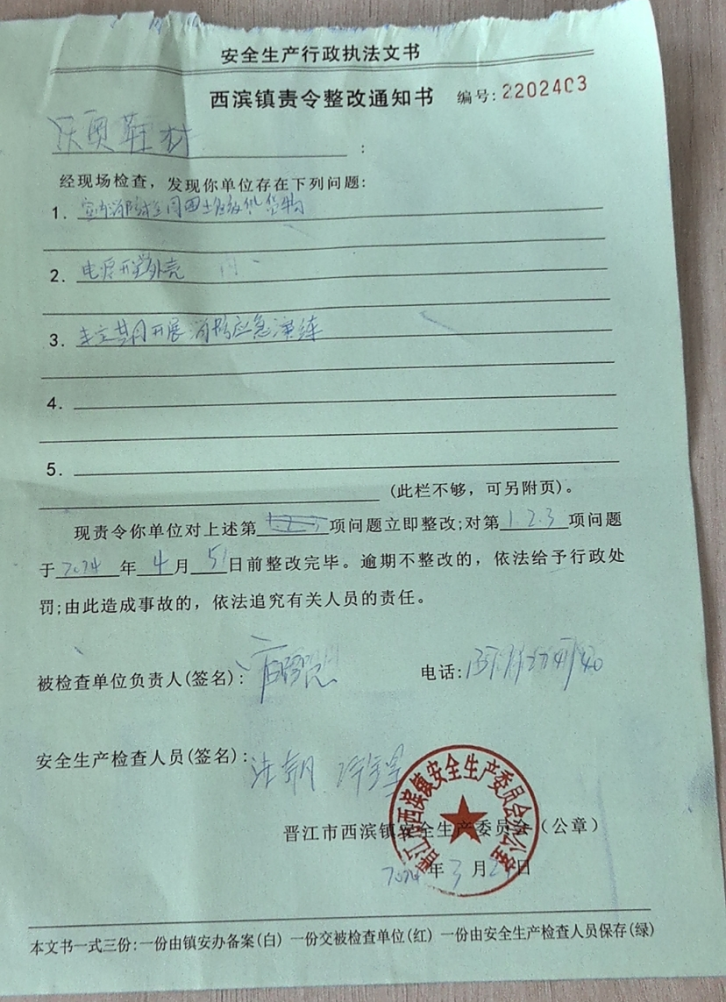 安全生产行政执法文书
西滨镇责令整改通知书 编号:2202403
沃奥鞋材 :
经现场检查，发现你单位存在下列问题:
1.
2. 电源开关外壳
3. 未立其月开展消防应急演练
4.
5.
(此栏不够，可另附页)。
现责令你单位对上述第 项问题立即整改;对第1.2.3项问题
于2024年4月5日前整改完毕。逾期不整改的，依法给予行政处
罚;由此造成事故的，依法追究有关人员的责任。
被检查单位负责人(签名): 电话:
安全生产检查人员(签名):
晋江市西滨镇安全生产委员会（公章）
2024年3月2 日
本文书一式三份:一份由镇安办备案(白) 一份交被检查单位(红) 一份由安全生产检查人员保存(绿)